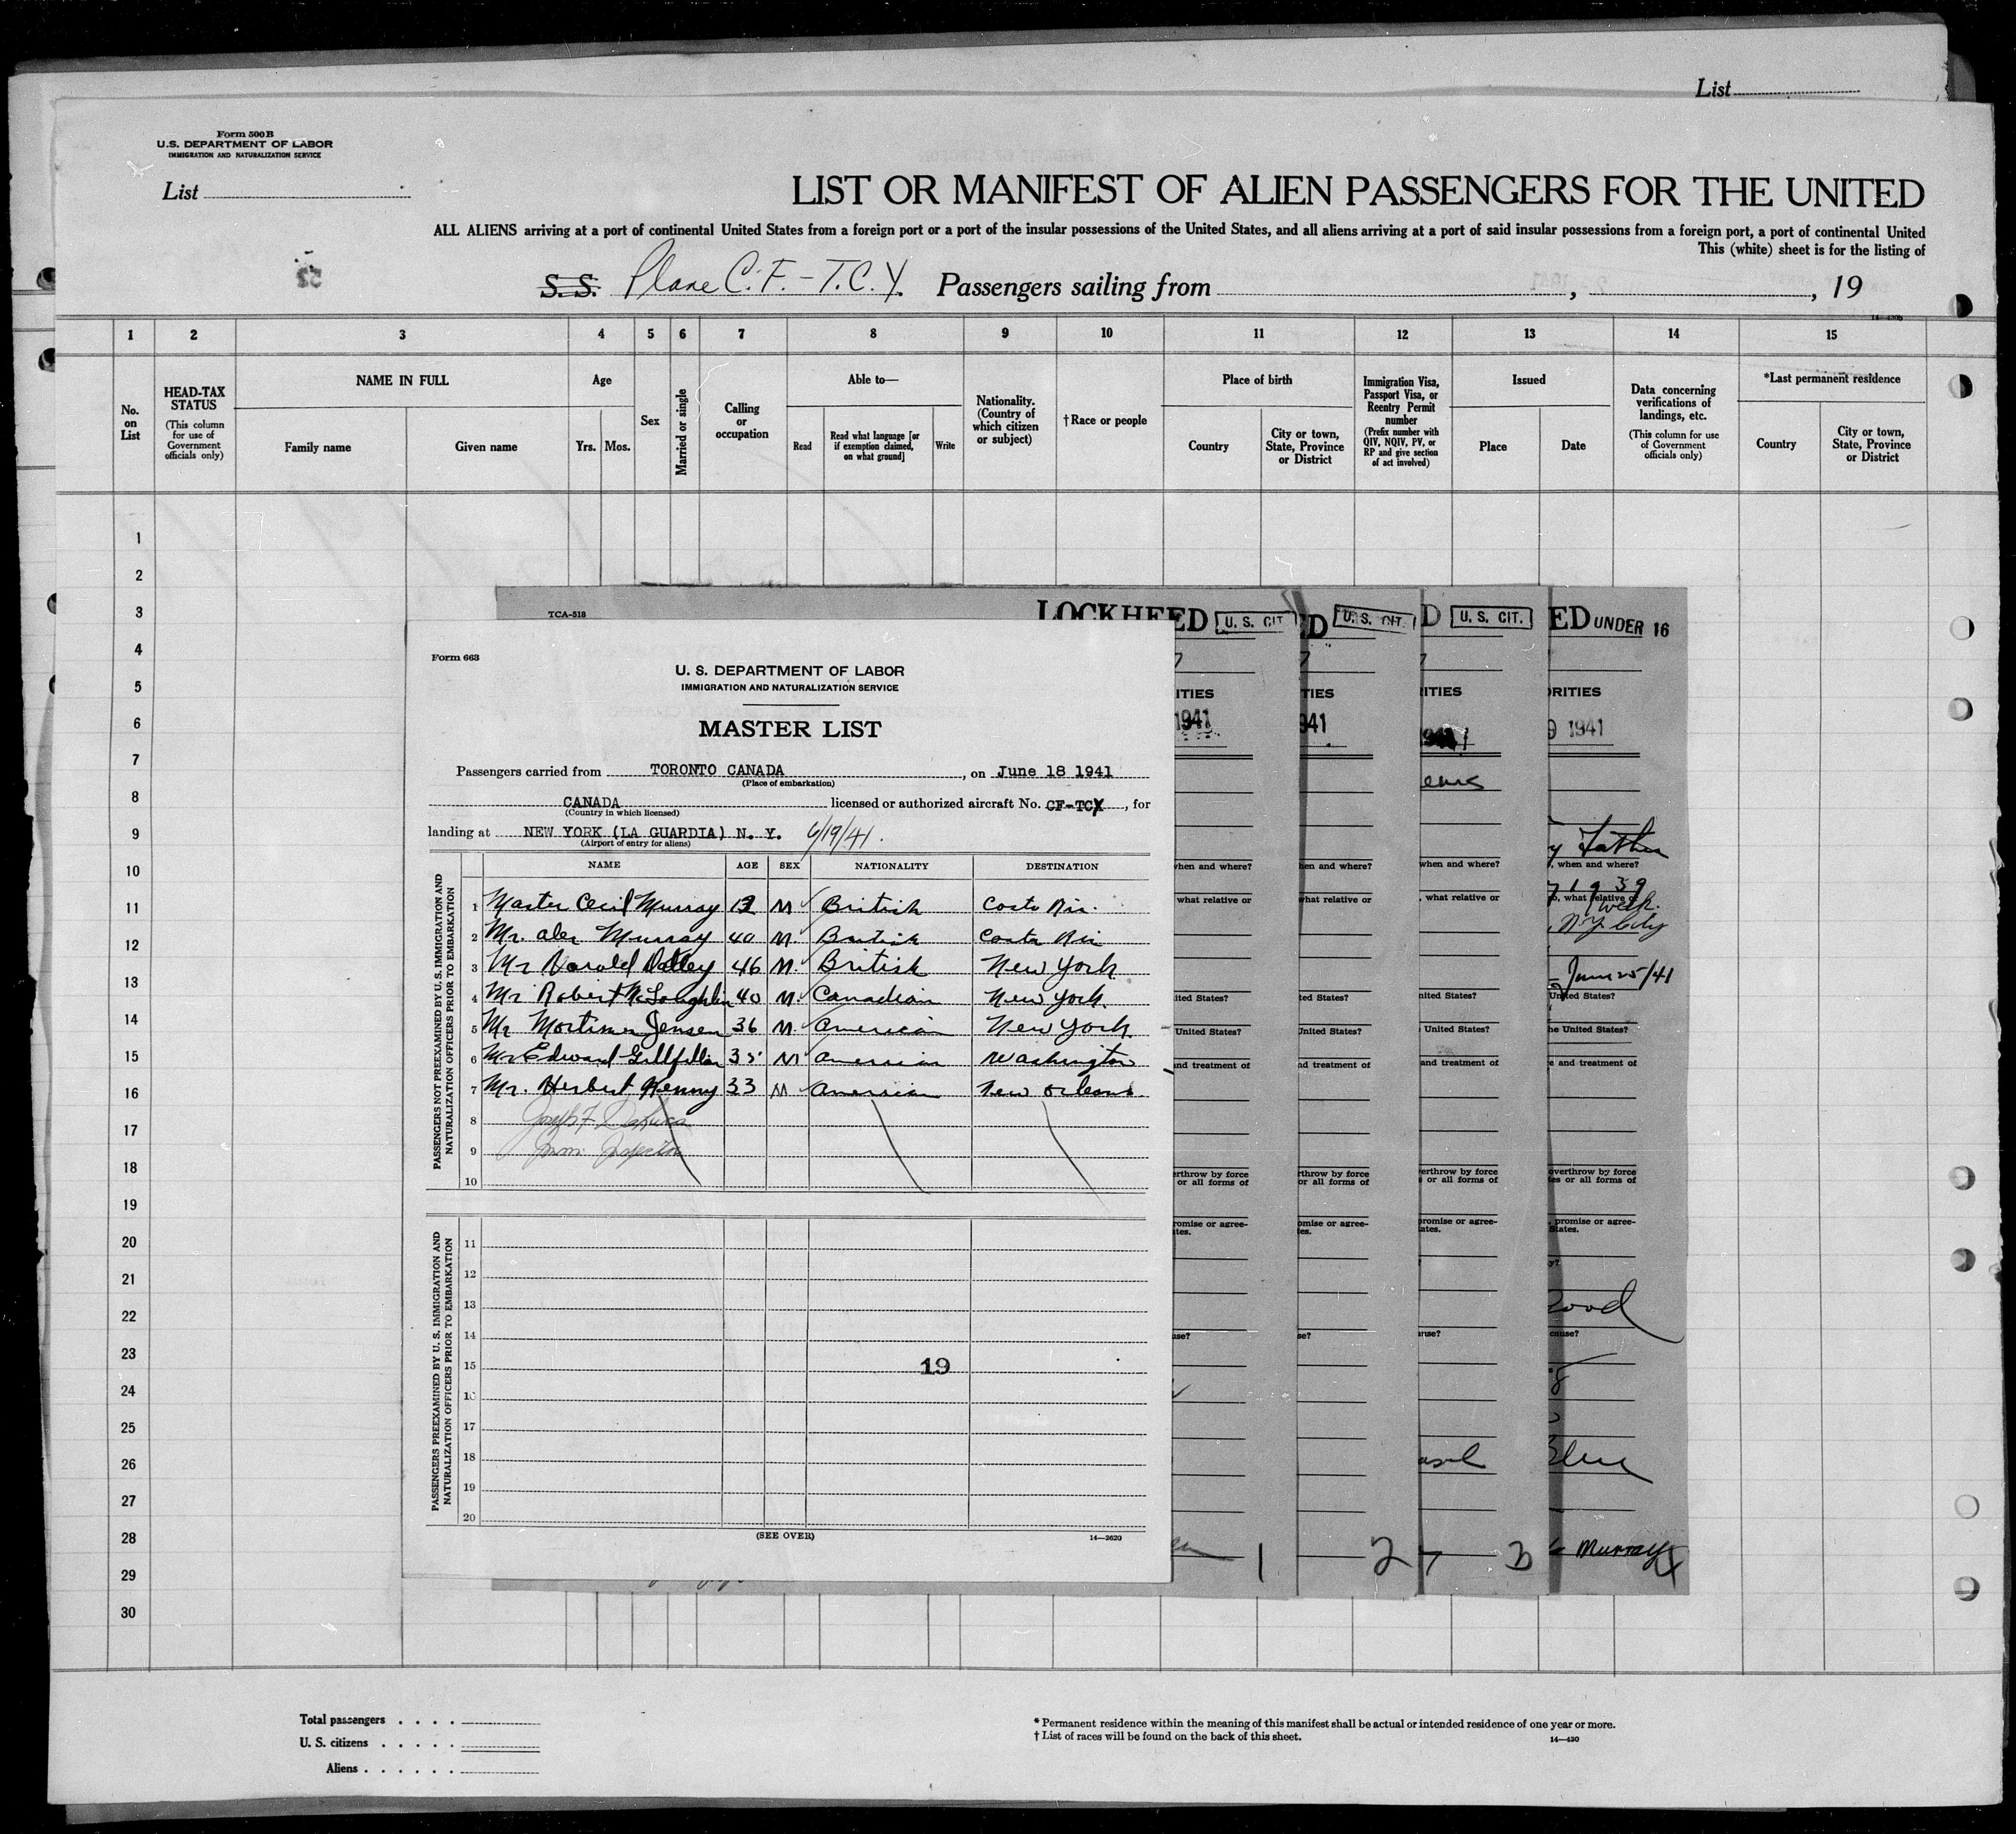 List
Form 500 B
U.S. DEPARTMENT OF LABOR
IMMIGRATION AND NATURALIZATION SERVICE
List
LIST OR MANIFEST OF ALIEN PASSENGERS FOR THE UNITED
ALL ALIENS arriving at a port of continental United States from a foreign port or a port of the insular possessions of the United States, and all aliens arriving at a port of said insular possessions from a foreign port, a port of continental United
This (white) sheet is for the listing of
S. S. Plane C. F. - T. C. Y. Passengers sailing from , , 19
1 2 3 4 5 6 7 8 9 10 11 12 13 14 15
No. on List
HEAD-TAX STATUS
(This column for use of Government officials only)
NAME IN FULL
Family name
Given name
Age
Yrs. Mos.
Sex
Married or single
Calling or occupation
Able to—
Read
Read what language [or if exemption claimed, on what ground]
Write
Nationality. (Country of which citizen or subject)
† Race or people
Place of birth
Country
City or town, State, Province or District
Immigration Visa, Passport Visa, or Reentry Permit number
(Prefix number with QIV, NQIV, PV, or RP and give section of act involved)
Issued
Place
Date
Data concerning verifications of landings, etc.
(This column for use of Government officials only)
*Last permanent residence
Country
City or town, State, Province or District
1
2
3
4
5
6
7
8
9
10
11
12
13
14
15
16
17
18
19
20
21
22
23
24
25
26
27
28
29
30
TCA-518
LOCKHEED U. S. CIT. ED U. S. CIT. D U. S. CIT. ED UNDER 16
Form 663
U. S. DEPARTMENT OF LABOR
IMMIGRATION AND NATURALIZATION SERVICE
MASTER LIST
Passengers carried from TORONTO CANADA, on June 18 1941
(Place of embarkation)
CANADA licensed or authorized aircraft No. CF-TCY, for
(Country in which licensed)
landing at NEW YORK (LA GUARDIA) N. Y. 6/19/41.
(Airport of entry for aliens)
NAME AGE SEX NATIONALITY DESTINATION
PASSENGERS NOT PREEXAMINED BY U. S. IMMIGRATION AND NATURALIZATION OFFICERS PRIOR TO EMBARKATION
1 Master Cecil Murray 12 M British Costa Ric.
2 Mr. Alex Murray 40 M. British Costa Ric
3 Mr Harold Dolley 46 M. British New York
4 Mr. Robert McLoughlin 40 M. Canadian New York.
5 Mr Mortimer Jensen 36 M. American New York.
6 Mr Edward Gillfillan 35 M American Washington
7 Mr. Herbert Kenny 33 M American New Orleans.
8 Joseph F.
9 Imm. Inspector
10
PASSENGERS PREEXAMINED BY U. S. IMMIGRATION AND NATURALIZATION OFFICERS PRIOR TO EMBARKATION
11
12
13
14
15 19
16
17
18
19
20
(SEE OVER)
14—2620
ITIES TIES ITIES ORITIES
1941 941 9 1941
y Father
when and where? hen and where? when and where? , when and where?
y 1939
what relative or what relative or , what relative or o, what relative or
1 week.
N.Y. City
June 25/41
ited States? ted States? nited States? United States?
United States? United States? United States? he United States?
nd treatment of d treatment of and treatment of e and treatment of
erthrow by force rthrow by force erthrow by force overthrow by force
or all forms of or all forms of s or all forms of tes or all forms of
romise or agree- omise or agree- promise or agree- , promise or agree-
tes. es. ates. States.
Good
use? se? use? cause?
Blue
1 2 3 Murray 4
Total passengers
U. S. citizens
Aliens
* Permanent residence within the meaning of this manifest shall be actual or intended residence of one year or more.
† List of races will be found on the back of this sheet.
14—430